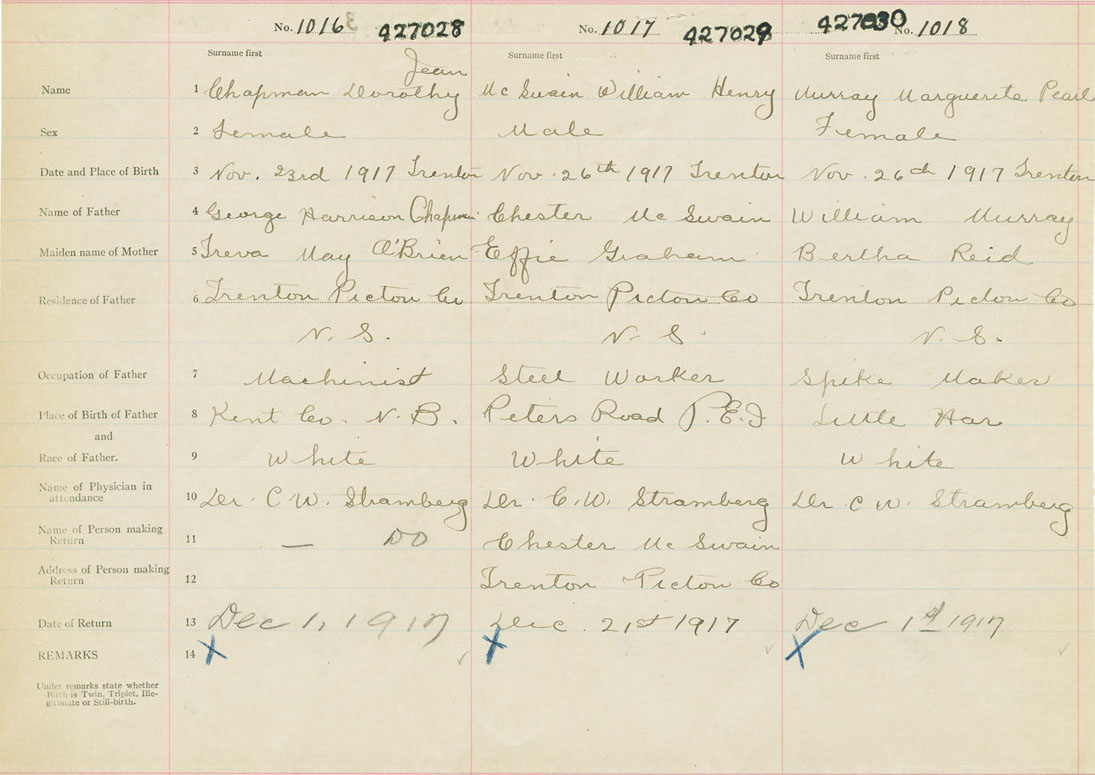 No. 1016 427028 No. 1017 427029 427030 No. 1018
Surname first Surname first Surname first
Jean
Name 1 Chapman Dorothy Mc Swain William Henry Murray Marguerite Pearl
Sex 2 Female Male Female
Date and Place of Birth 3 Nov. 23rd 1917 Trenton Nov. 26th 1917 Trenton Nov. 26th 1917 Trenton
Name of Father 4 George Harrison Chapman Chester Mc Swain William Murray
Maiden name of Mother 5 Treva May O'Brien Effie Graham Bertha Reid
Residence of Father 6 Trenton Picton Co Trenton Picton Co Trenton Picton Co
N. S. N. S N. S.
Occupation of Father 7 Machinist Steel Worker Spike Maker
Place of Birth of Father 8 Kent Co. N. B. Peters Road P.E.I Little Har
and
Race of Father. 9 White White White
Name of Physician in
attendance 10 Dr. C W. Stramberg Dr. C. W. Stramberg Dr C W. Stramberg
Name of Person making
Return 11 — DO Chester Mc Swain
Address of Person making
Return 12 Trenton Picton Co
Date of Return 13 Dec 1, 1917 Dec. 21st 1917 Dec 1st 1917
REMARKS 14 X X X
Under remarks state whether
Birth is Twin, Triplet, Ille-
gitimate or Still-birth.